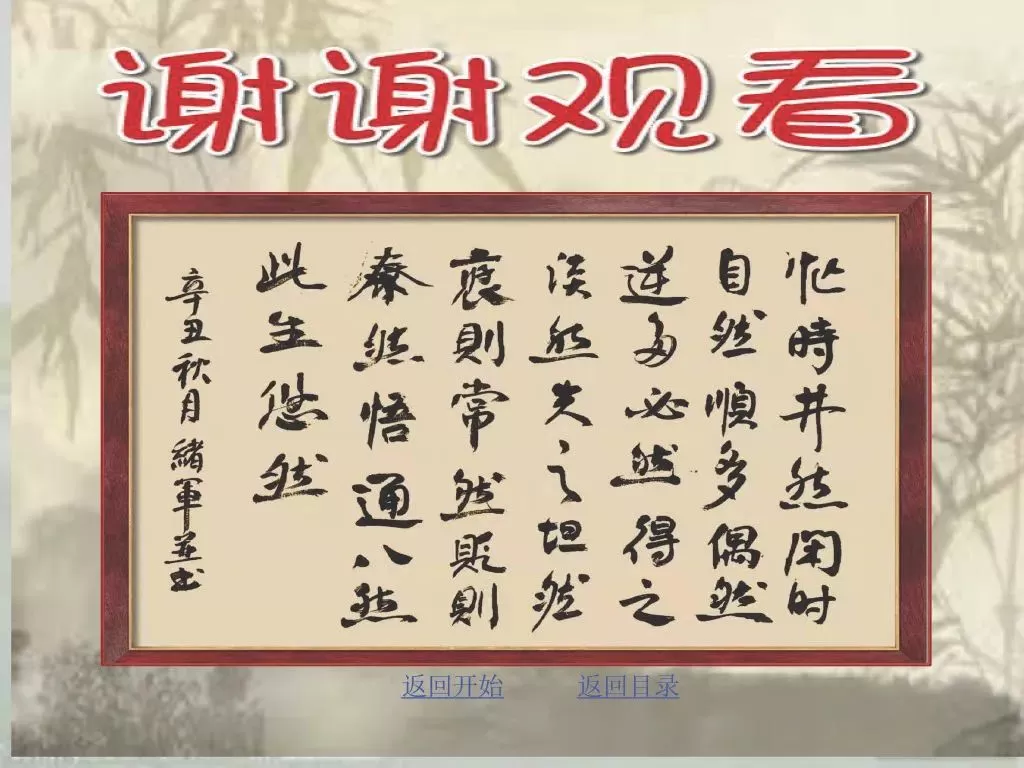 谢谢观看
忙時井然闲时
自然順多偶然
逆多必然得之
淡然失之坦然
褒則常然貶則
泰然悟通八然
此生悠然
辛丑秋月緒軍並书
返回开始 返回目录